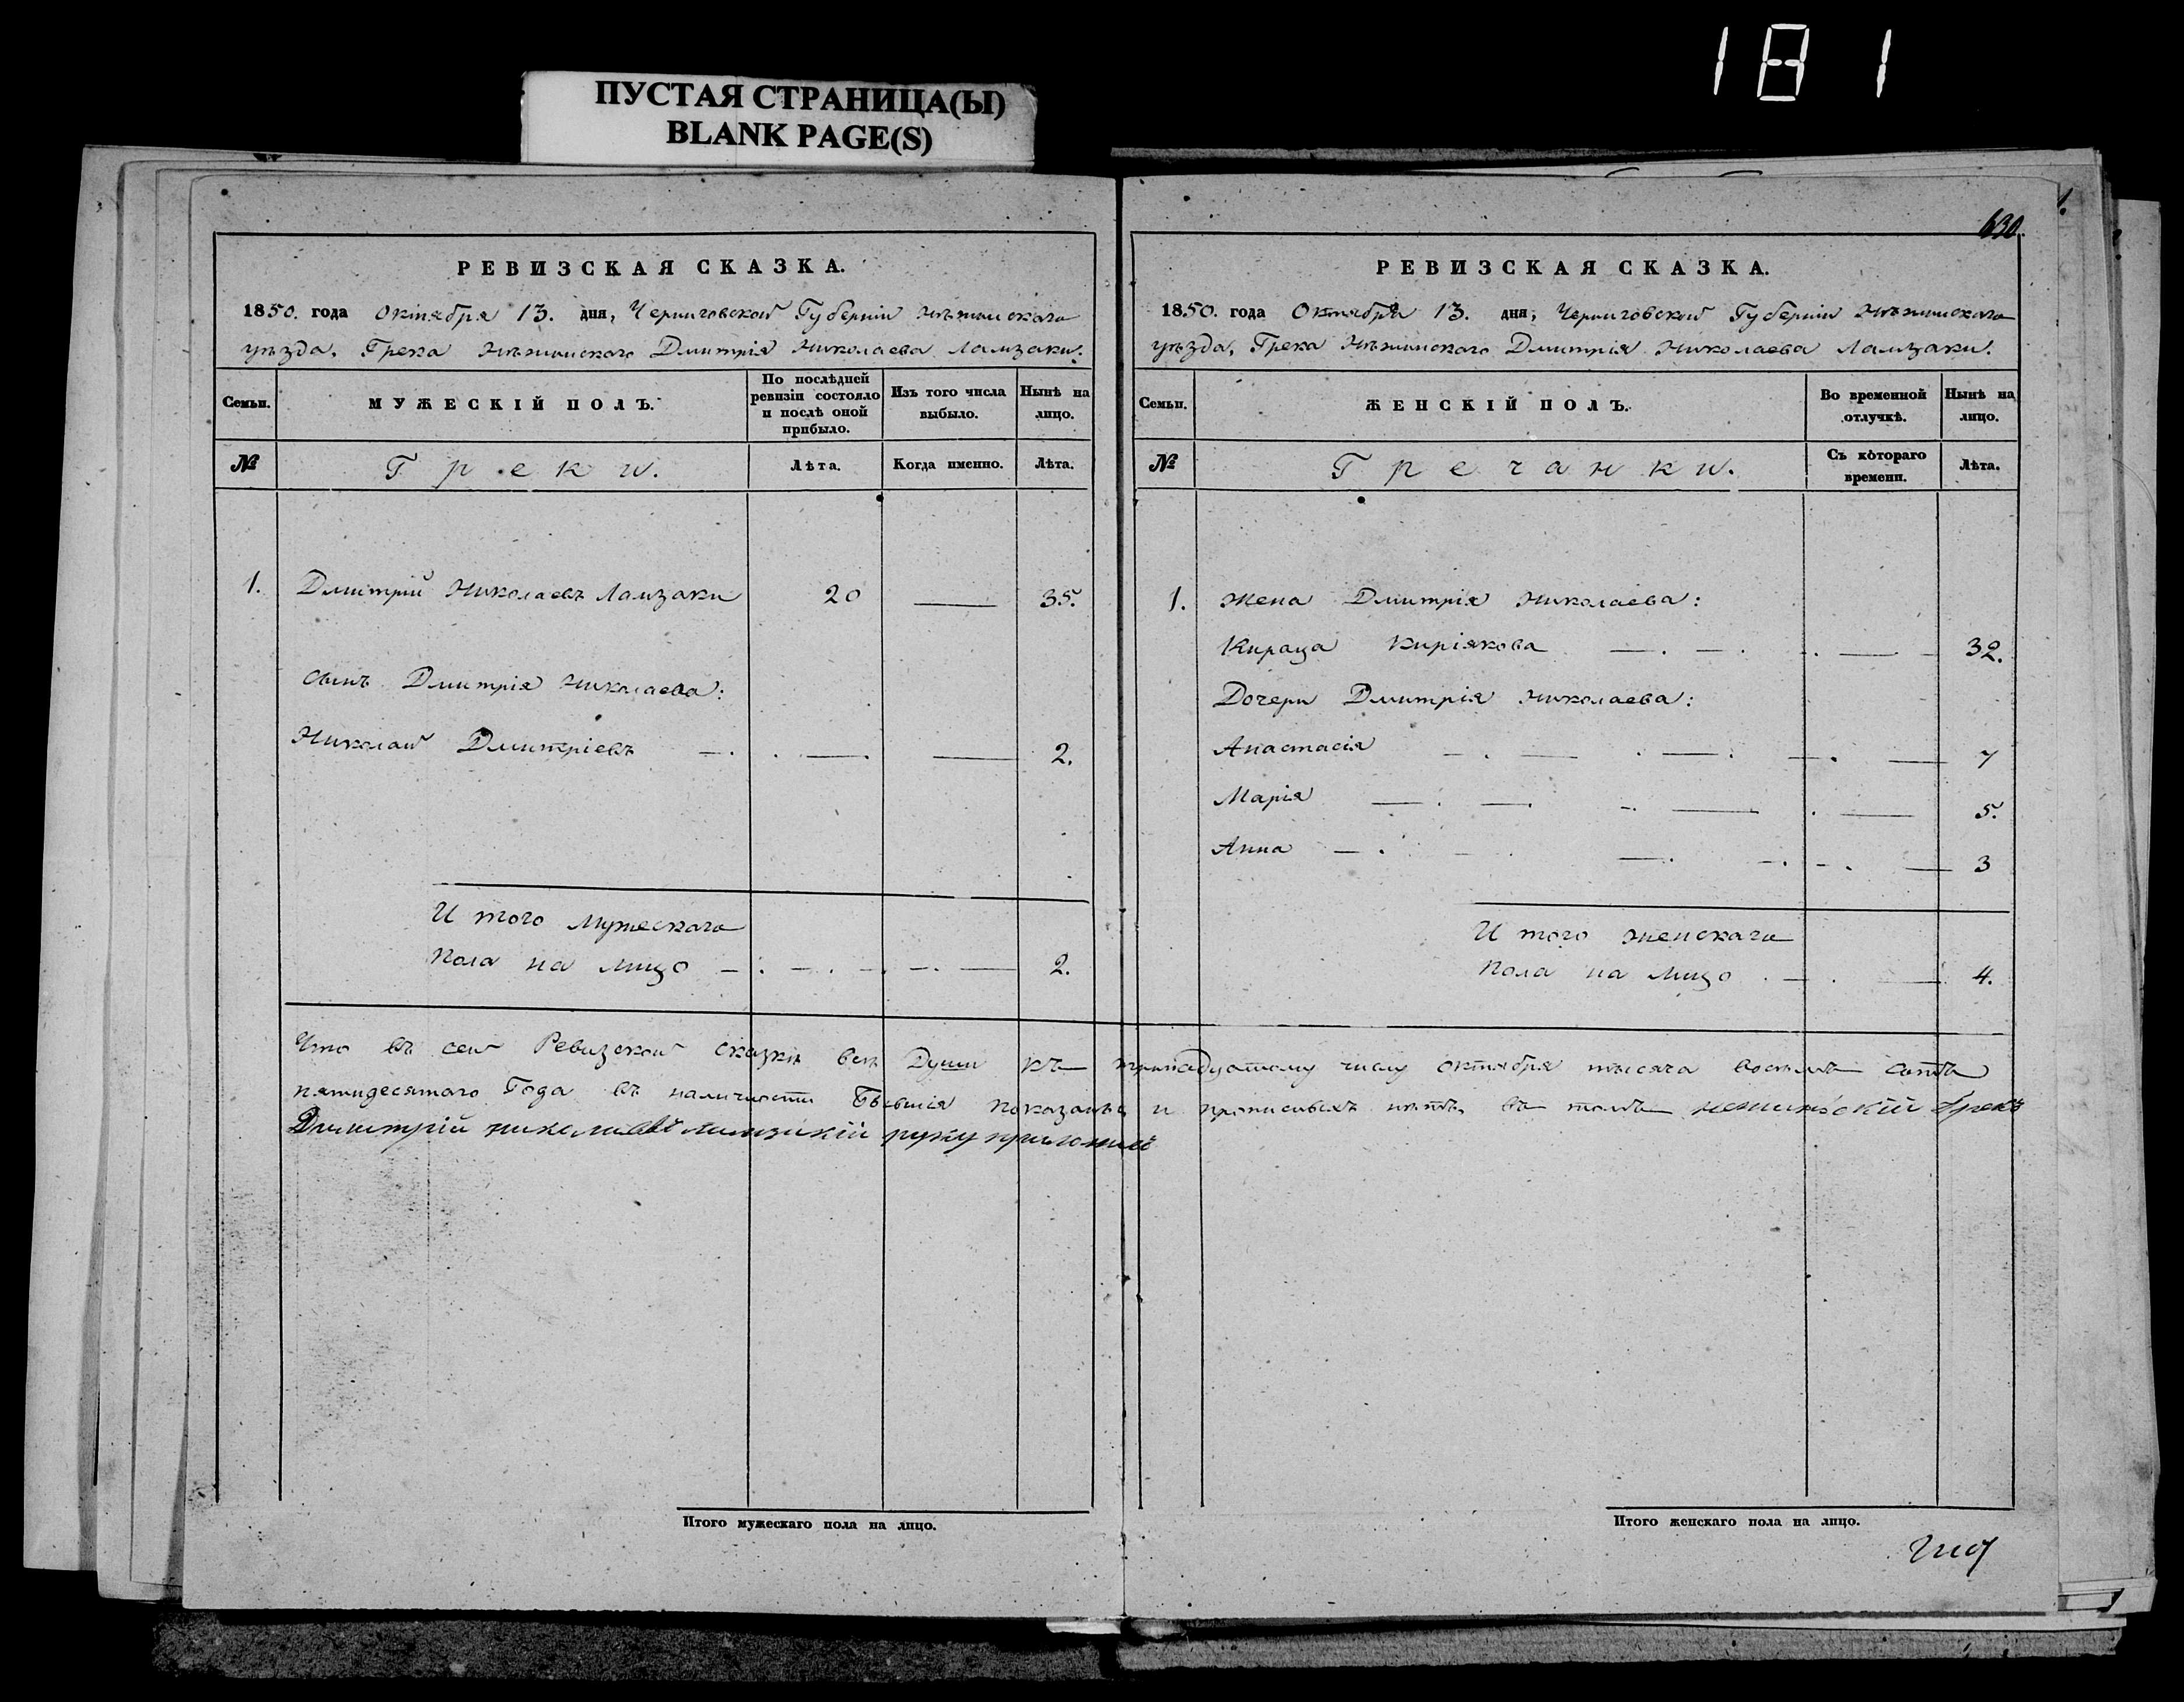 181
ПУСТАЯ СТРАНИЦА(Ы)
BLANK PAGE(S)
РЕВИЗСКАЯ СКАЗКА.
1850. года Октября 13. дня, Черниговской Губерніи Нѣжинскаго
уѣзда, Грека Нѣжинскаго Дмитрія Николаева Ламзаки.
Семьи.
МУЖЕСКІЙ ПОЛЪ.
По послѣдней ревизіи состояло и послѣ оной прибыло.
Изъ того числа выбыло.
Нынѣ на лицо.
№
Греки.
Лѣта.
Когда именно.
Лѣта.
1. Дмитрій Николаевъ Ламзаки 20 — 35.
Сынъ Дмитрія Николаева:
Николай Дмитріевъ — 2.
И того мужескаго
пола на лицо — 2.
630.
РЕВИЗСКАЯ СКАЗКА.
1850. года Октября 13. дня, Черниговской Губерніи Нѣжинскаго
уѣзда, Грека Нѣжинскаго Дмитрія Николаева Ламзаки.
Семьи.
ЖЕНСКІЙ ПОЛЪ.
Во временной отлучкѣ.
Нынѣ на лицо.
№
Гречанки.
Съ котораго времени.
Лѣта.
1. Жена Дмитрія Николаева:
Кираца Киріякова — 32.
Дочери Дмитрія Николаева:
Анастасія — 7
Марія — 5.
Анна — 3
И того женскаго
пола на лицо — 4.
Что въ сей Ревизской сказкѣ всѣ Души къ тринадцатому числу октября тысяча восемь сотъ
пятидесятаго Года въ наличности Бывшія показаны и прописныхъ нѣтъ, въ томъ неженъскій грекъ
Димитрій николаевъ ламзакій руку приложилъ
Итого мужескаго пола на лицо.
Итого женскаго пола на лицо.